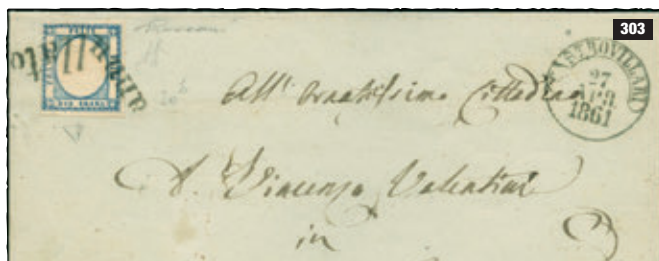 303
Annullato
DUE GRANA
CASTROVILLARI
27
APR
1861
All' Ornatissimo Cittadino
D. Vincenzo Valentini
in